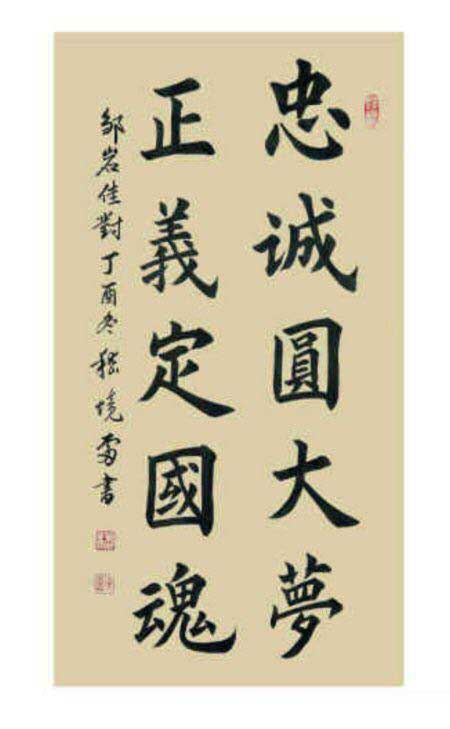 忠诚圓大夢
正義定國魂
邹岩佳對丁酉冬嵇境雷書